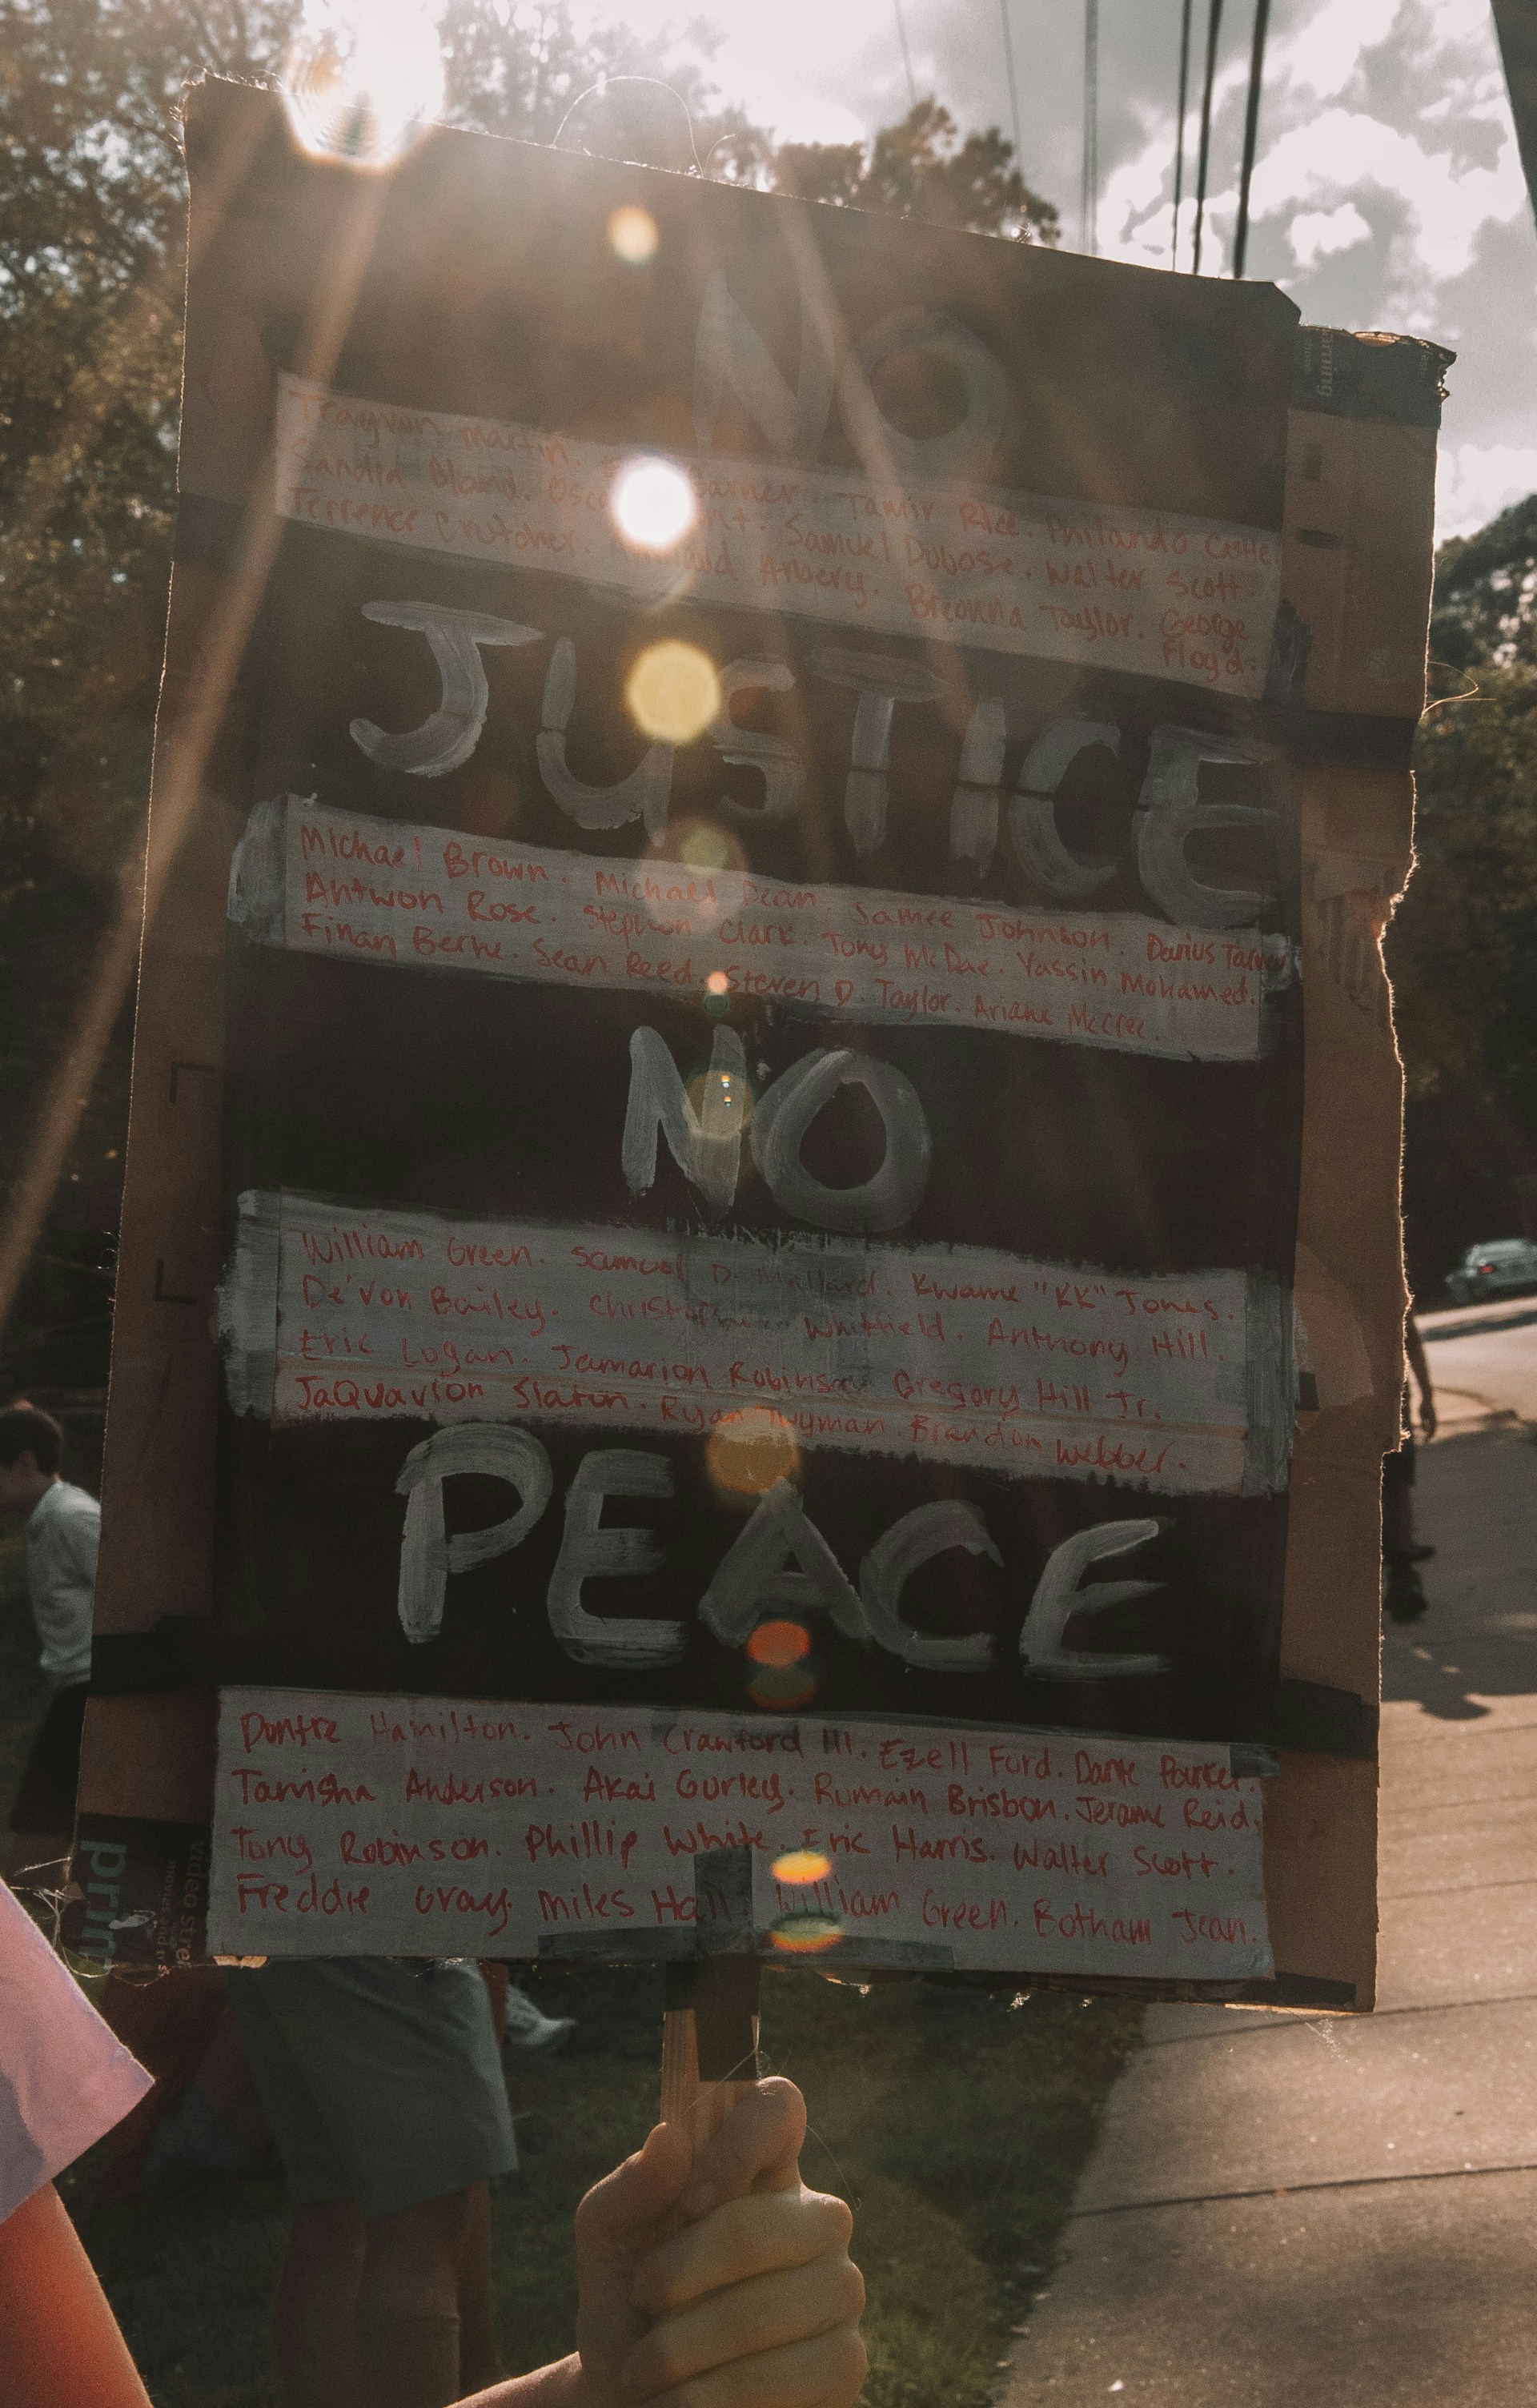 NO
Trayvon Martin. Garner. Tamir Rice. Philando Castile.
Sandra Bland. Samuel Dubose. Walter Scott.
Terrence Crutcher. Arbery. Breonna Taylor. George
Floyd.
JUSTICE
Michael Brown. Michael Dean. Samee Johnson. Darius
Antwon Rose. Stephon Clark. Tony McDae. Yassin Mohamed.
Finan Berhe. Sean Reed. Steven D. Taylor. Ariane McCree.
NO
William Green. Samuel D. Mallard. Kwame "KK" Jones.
De'Von Bailey. Christopher Whitfield. Anthony Hill.
Eric Logan. Jamarion Robinson Gregory Hill Jr.
JaQuavion Slaton. Ryan Twyman. Brandon Webber.
PEACE
Dontre Hamilton. John Crawford III. Ezell Ford. Dante Parker.
Tanisha Anderson. Akai Gurley. Rumain Brisbon. Jerame Reid.
Tony Robinson. Phillip White. Eric Harris. Walter Scott.
Freddie Gray. Miles Hall William Green. Botham Jean.